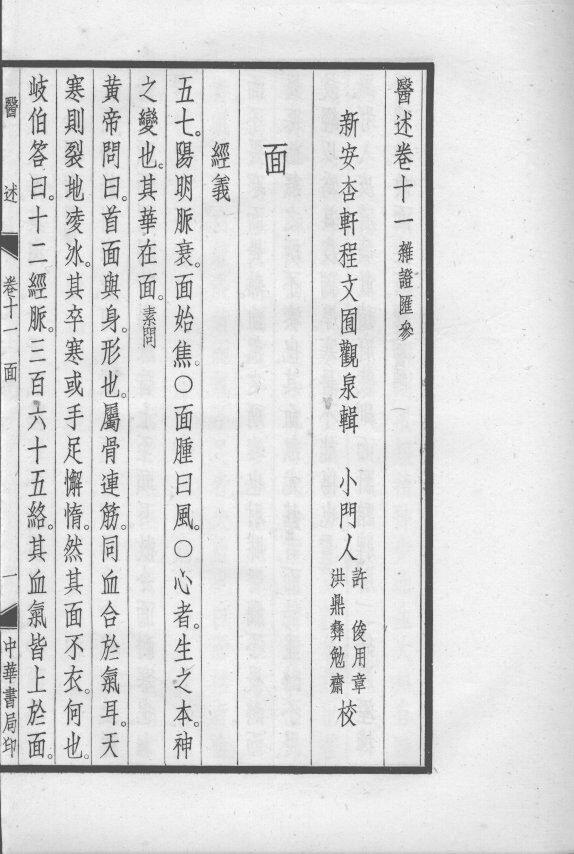 醫述卷十一 雜證匯參
新安杏軒程文囿觀泉輯 小門人
許 俊用章
洪鼎彝勉齋
校
面
經義
五七。陽明脈衰。面始焦。〇面腫曰風。〇心者。生之本。神
之變也。其華在面。素問
黃帝問曰。首面與身。形也。屬骨連筋。同血合於氣耳。天
寒則裂地凌冰。其卒寒或手足懈惰。然其面不衣。何也。
岐伯答曰。十二經脈。三百六十五絡。其血氣皆上於面。
醫 述 卷十一 面 一 中華書局印